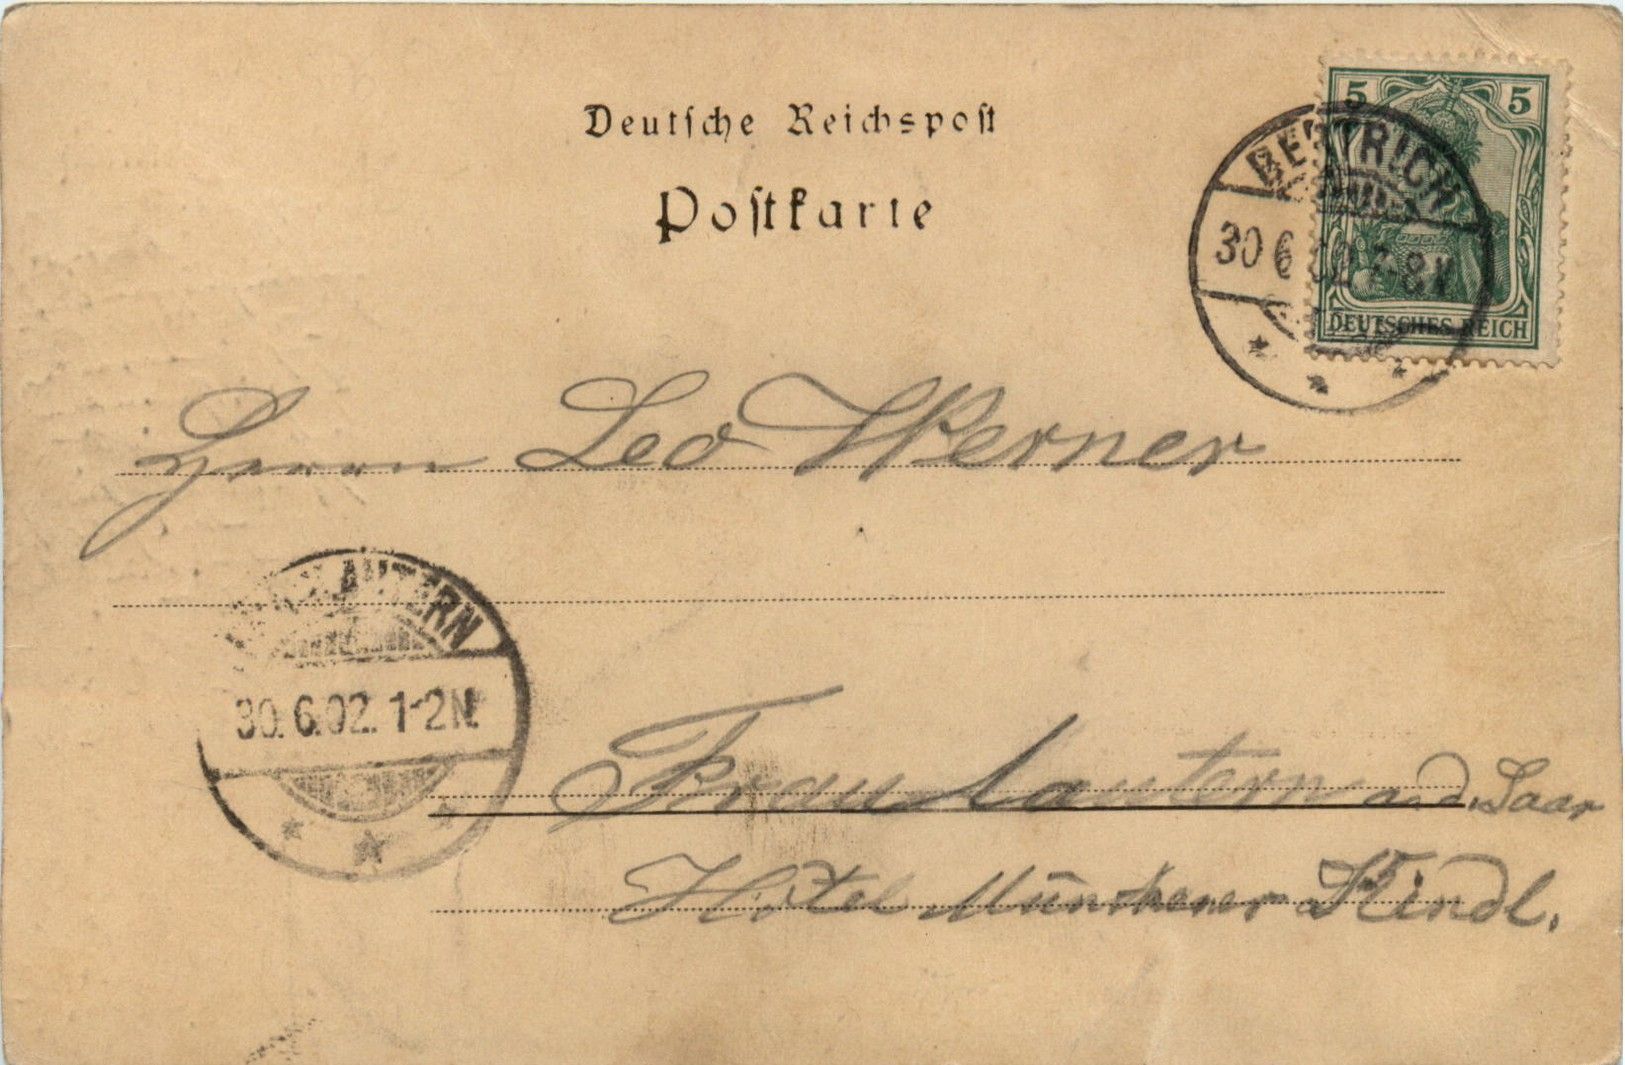 Deutsche Reichspost
Postkarte
5 5
DEUTSCHES REICH
BERTRICH
30 6 02 7-8 V
Herrn Leo Werner
LAUTERN
30.6.02. 1-2N.
Fraulautern a.d. Saar
Hotel Münchener Kindl.